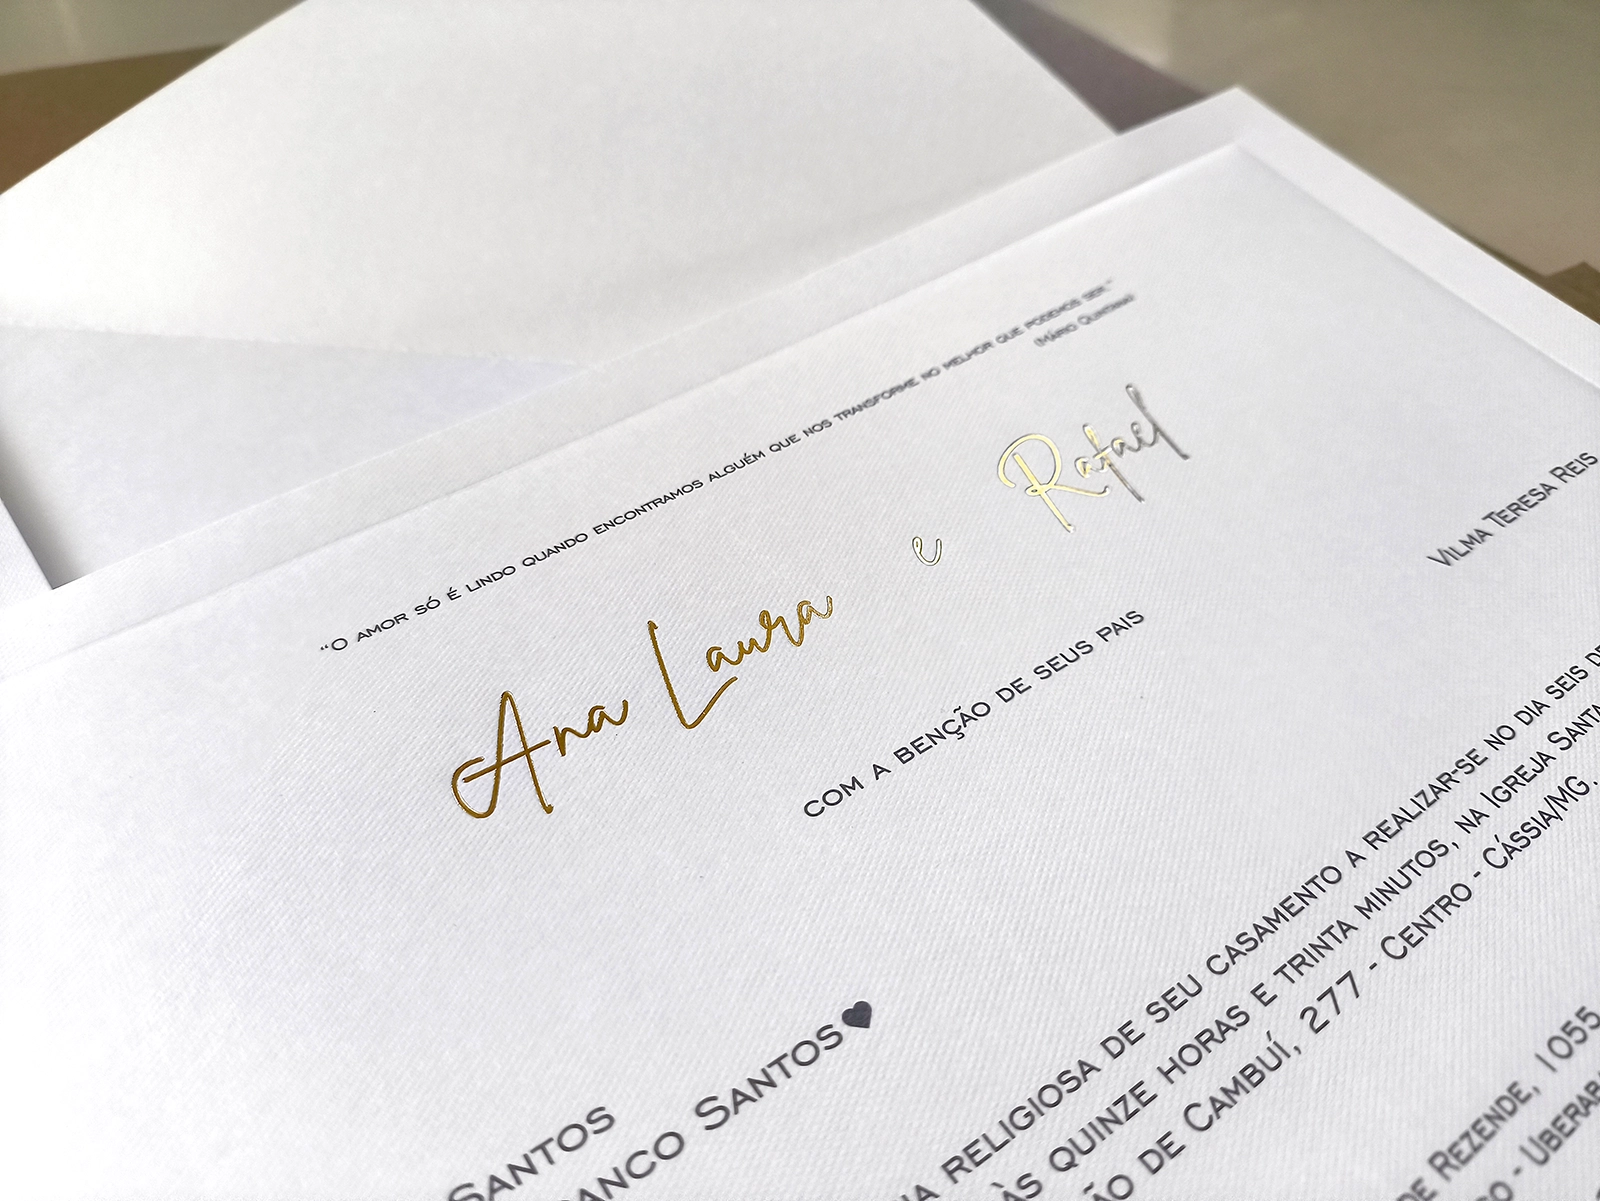 “O AMOR SÓ É LINDO QUANDO ENCONTRAMOS ALGUÉM QUE NOS TRANSFORME NO MELHOR QUE PODEMOS SER.”
(MÁRIO QUINTANA)
Ana Laura e Rafael
COM A BENÇÃO DE SEUS PAIS
SANTOS
SANTOS♥
VILMA TERESA REIS
RELIGIOSA DE SEU CASAMENTO A REALIZAR-SE NO DIA SEIS
ÀS QUINZE HORAS E TRINTA MINUTOS, NA IGREJA SANTA
DE CAMBUÍ, 277 - CENTRO - CÁSSIA/MG.
DE REZENDE, 1055
- UBERABA